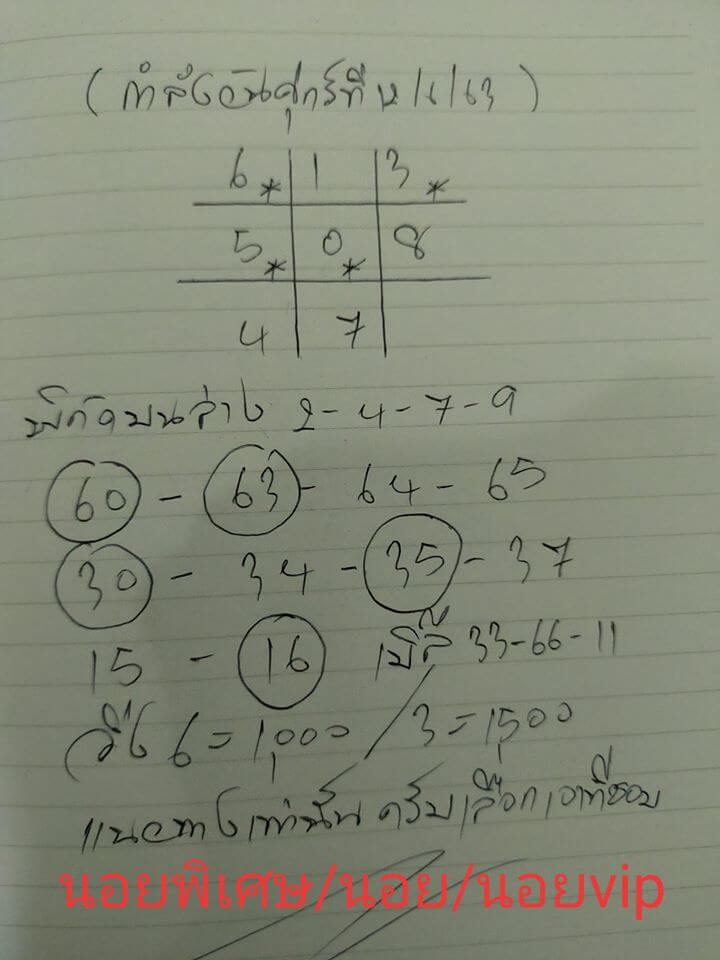 (กำลังวันศุกร์ที่ 12/6/63)
6* 1 3*
5* 0* 8
4 7
พิกัดบนล่าง 2-4-7-9
60 - 63 - 64 - 65
30 - 34 - 35 - 37
15 - 16 เบิ้ล 33-66-11
วิ่ง 6 = 1,000 / 3 = 1,500
แนวทางเท่านั้น ครับ เลือกเอาที่ชอบ
นอยพิเศษ/นอย/นอยvip